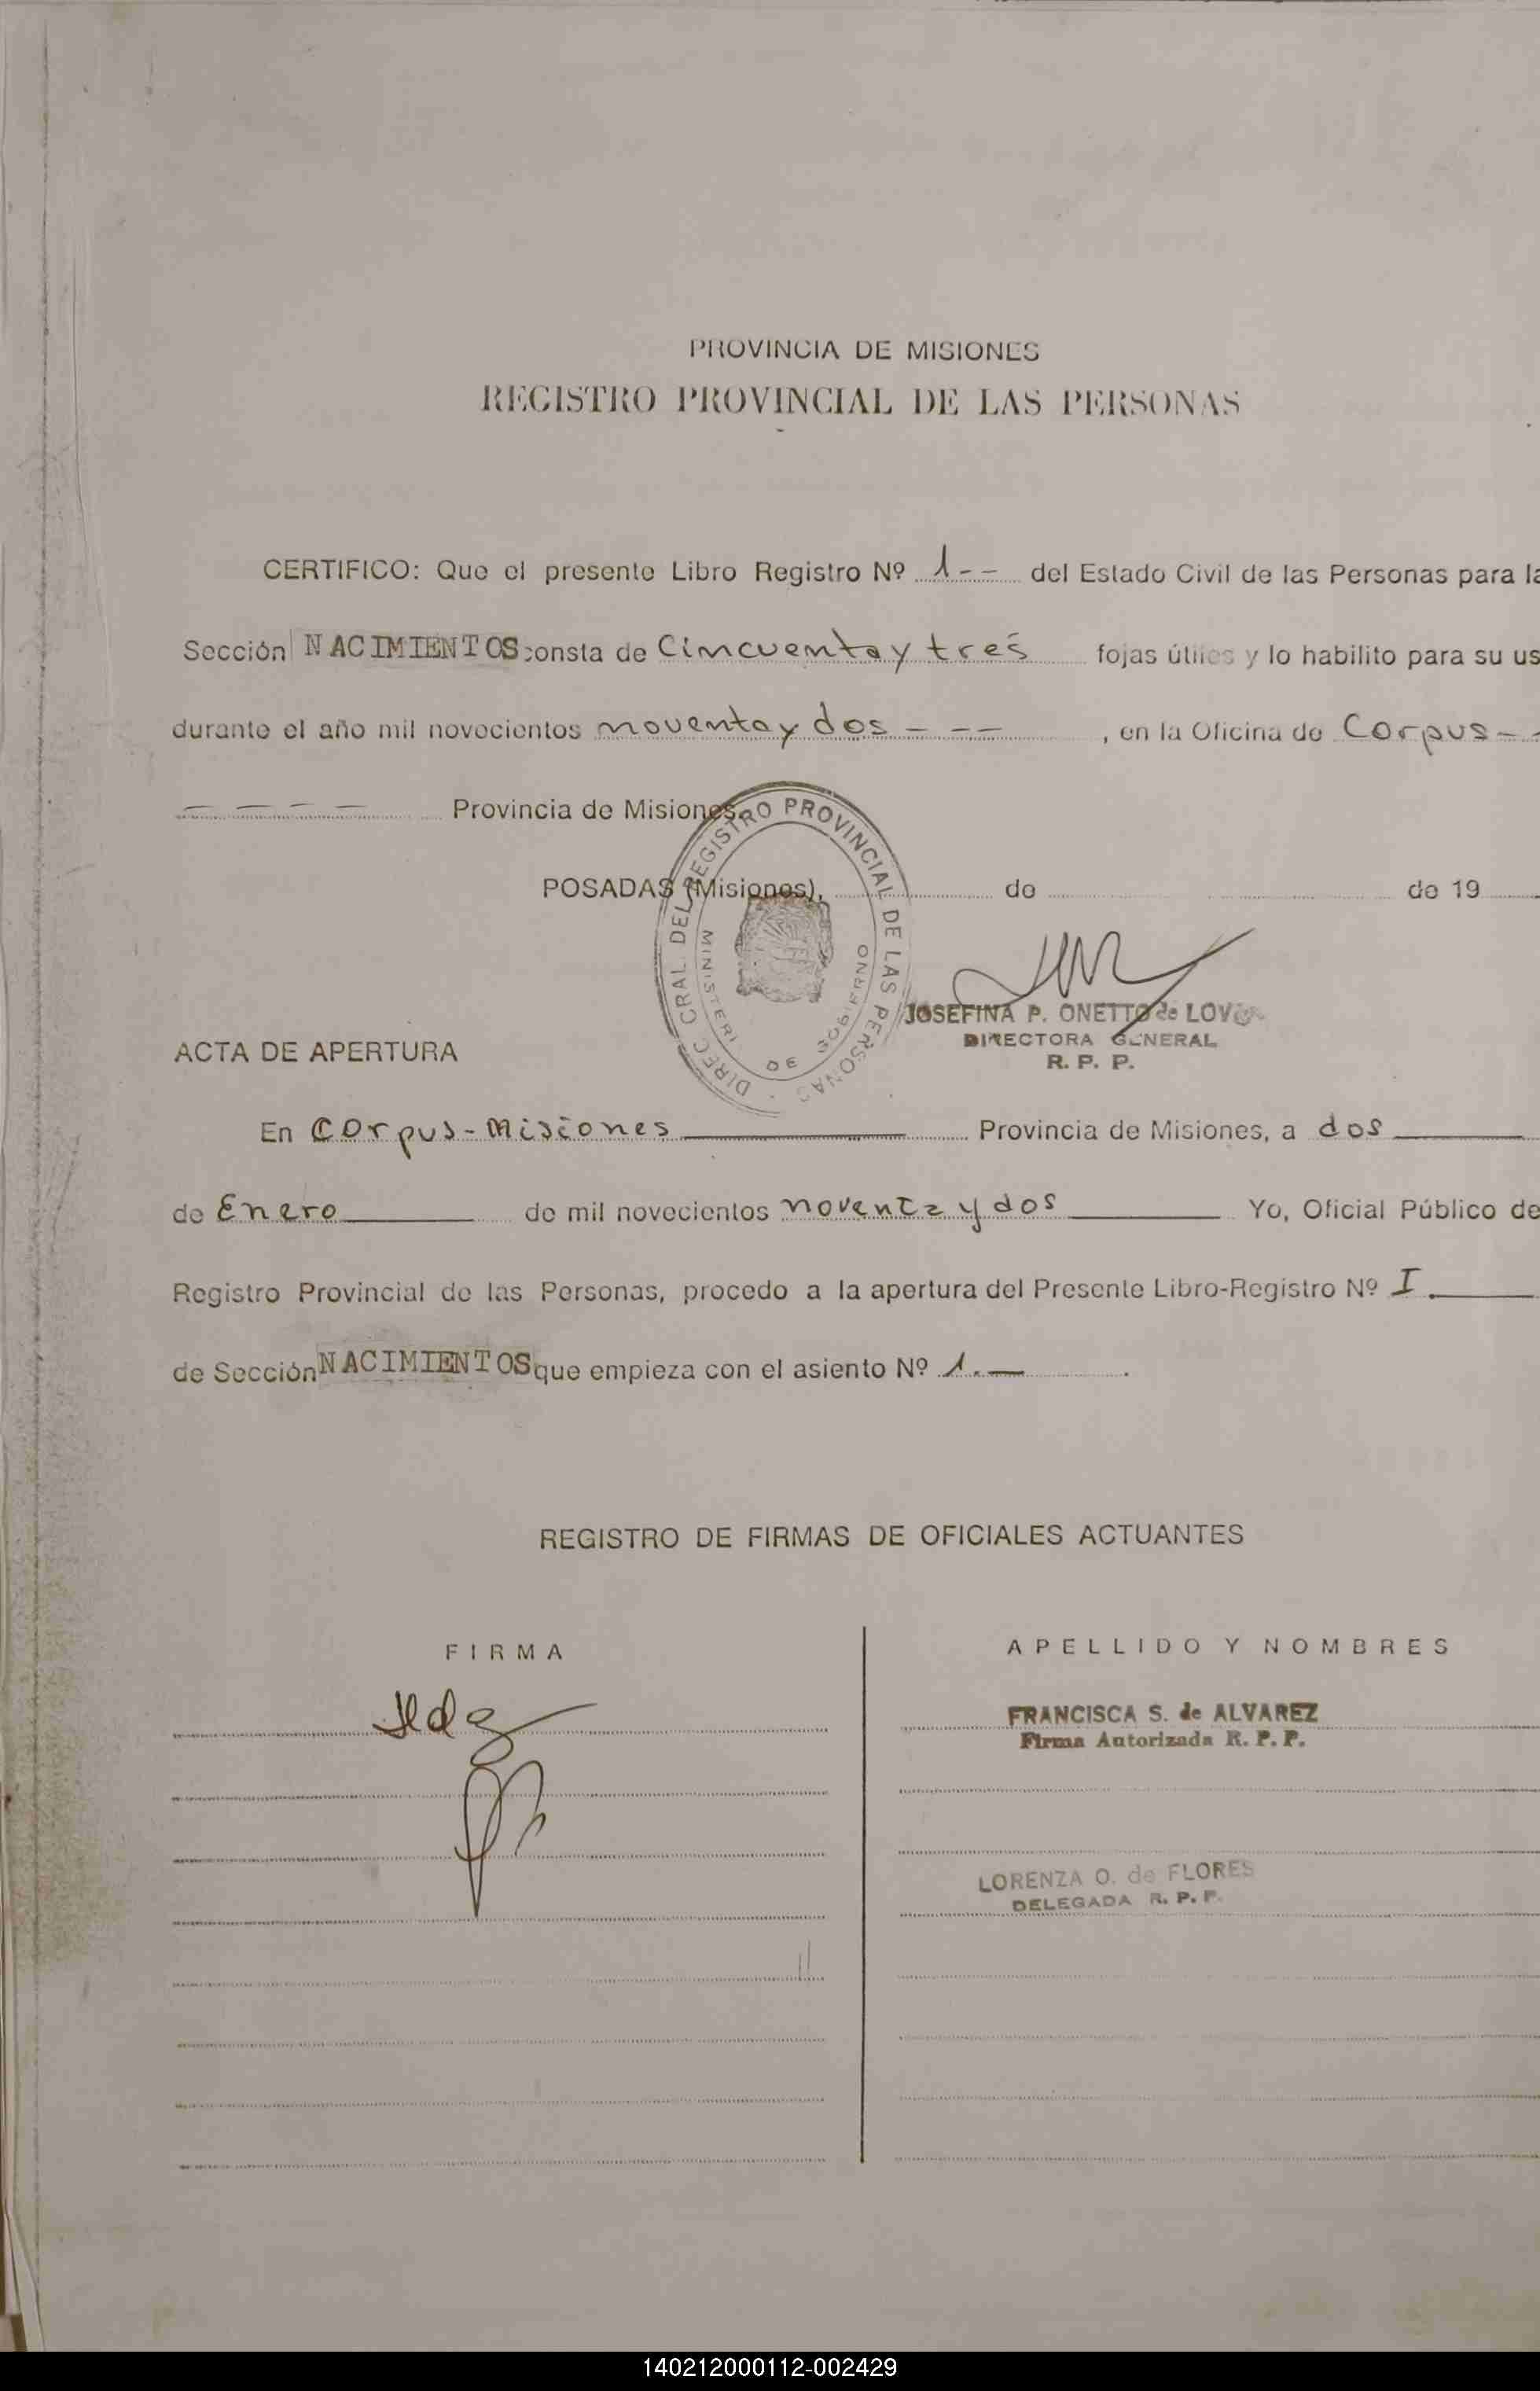 PROVINCIA DE MISIONES
REGISTRO PROVINCIAL DE LAS PERSONAS
CERTIFICO: Que el presente Libro Registro Nº 1-- del Estado Civil de las Personas para la
Sección NACIMIENTOS consta de Cincuenta y tres fojas útiles y lo habilito para su us
durante el año mil novecientos noventa y dos - -- , en la Oficina de Corpus - -
---- Provincia de Misiones.
POSADAS (Misiones), de de 19
DIREC GRAL. DEL REGISTRO PROVINCIAL DE LAS PERSONAS
MINISTERI DE GOBIERNO
JOSEFINA P. ONETTO de
DIRECTORA GENERAL
R. P. P.
ACTA DE APERTURA
En Corpus-Misiones Provincia de Misiones, a dos
de Enero de mil novecientos noventa y dos Yo, Oficial Público de
Registro Provincial de las Personas, procedo a la apertura del Presente Libro-Registro Nº I.
de Sección NACIMIENTOS que empieza con el asiento Nº 1.—
REGISTRO DE FIRMAS DE OFICIALES ACTUANTES
FIRMA APELLIDO Y NOMBRES
FRANCISCA S. de ALVAREZ
Firma Autorizada R. P. P.
LORENZA O. de FLORES
DELEGADA R. P. P.
140212000112-002429